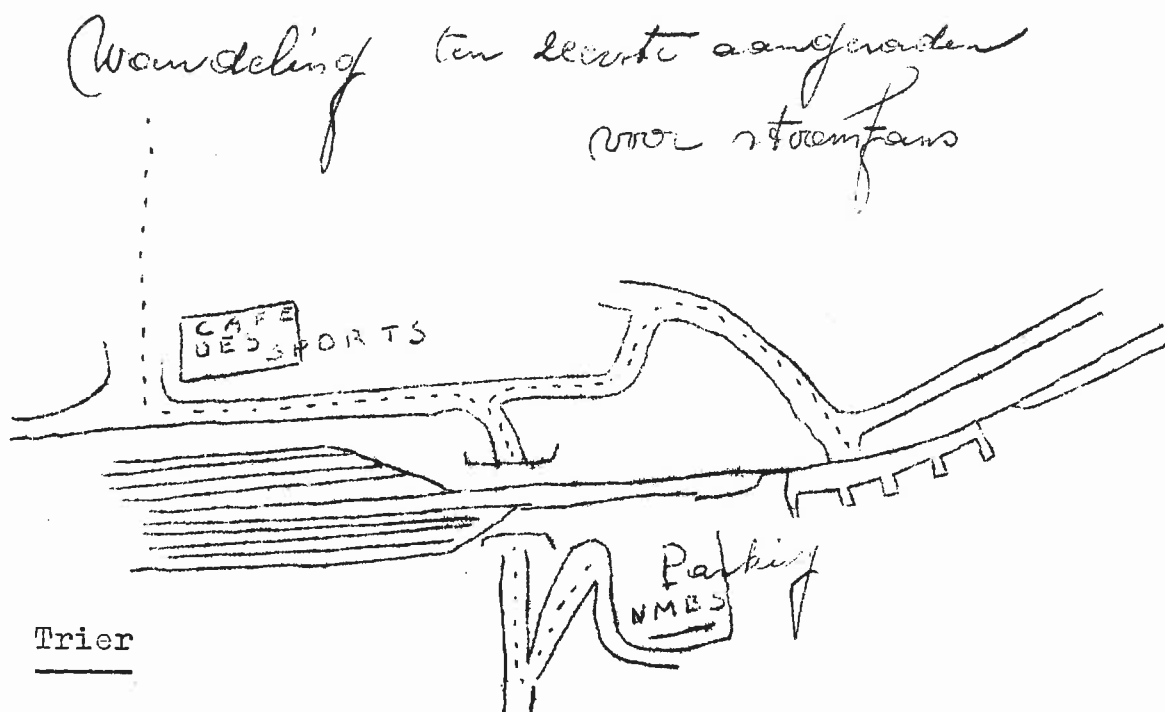 Wandeling ten zeerste aangeraden
voor stoomfans
CAFE
DES SPORTS
Parking
NMBS
Trier